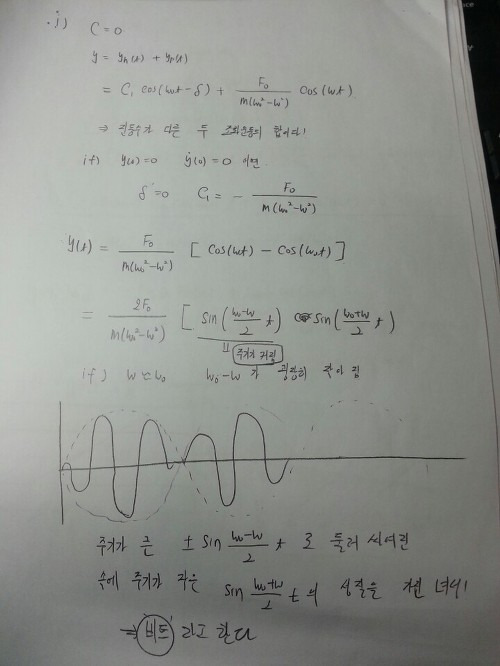 .j) C=0
y = yh(t) + yp(t)
= C₁ cos(ω₀t-δ) + F₀/m(ω₀²-ω²) cos(ωt)
⇒ 진동수가 다른 두 조화운동의 합이다!
if) y(0)=0 ẏ(0)=0 이면
δ=0 C₁= - F₀/m(ω₀²-ω²)
y(t) = F₀/m(ω₀²-ω²) [ cos(ωt) - cos(ω₀t) ]
= 2F₀/m(ω₀²-ω²) [ sin(ω₀-ω/2 t) sin(ω₀+ω/2 t)
॥ 주기가 커짐
if) ω≃ω₀ ω₀-ω 가 굉장히 작아 짐
주기가 큰 ± sin ω₀-ω/2 t 로 둘러 싸여진
속에 주기가 작은 sin ω₀+ω/2 t 의 성질을 가진 녀석!
⇒ 비트 라고 한다